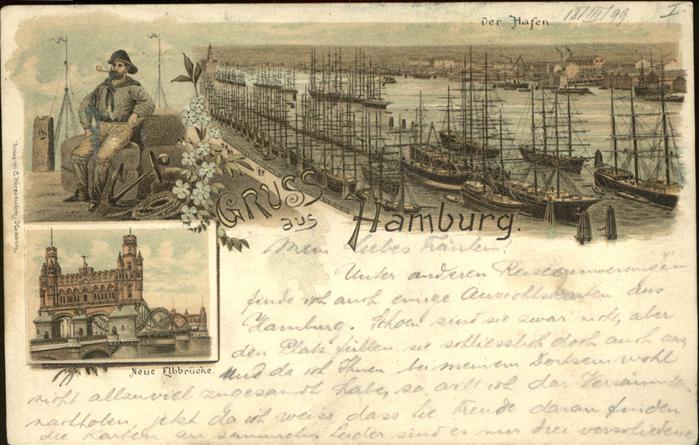 Der Hafen
18/III/99 I
Gruss
aus
Hamburg.
Mein liebes Fräulein!
Unter anderen Reiseerinnerungen
finde ich auch einige Ansichtskarten aus
Hamburg. Schoen sind sie zwar nicht, aber
den Platz füllen sie schliesslich doch auch aus
und da ich Ihnen bei meinem Dortsein wohl
Neue Elbbrücke.
nicht allzuviel zugesandt habe, so will ich das
nachholen, jetzt da ich weiss dass Sie Freude daran finden
die Karten zu sammeln. Leider sind es nur drei verschiedene